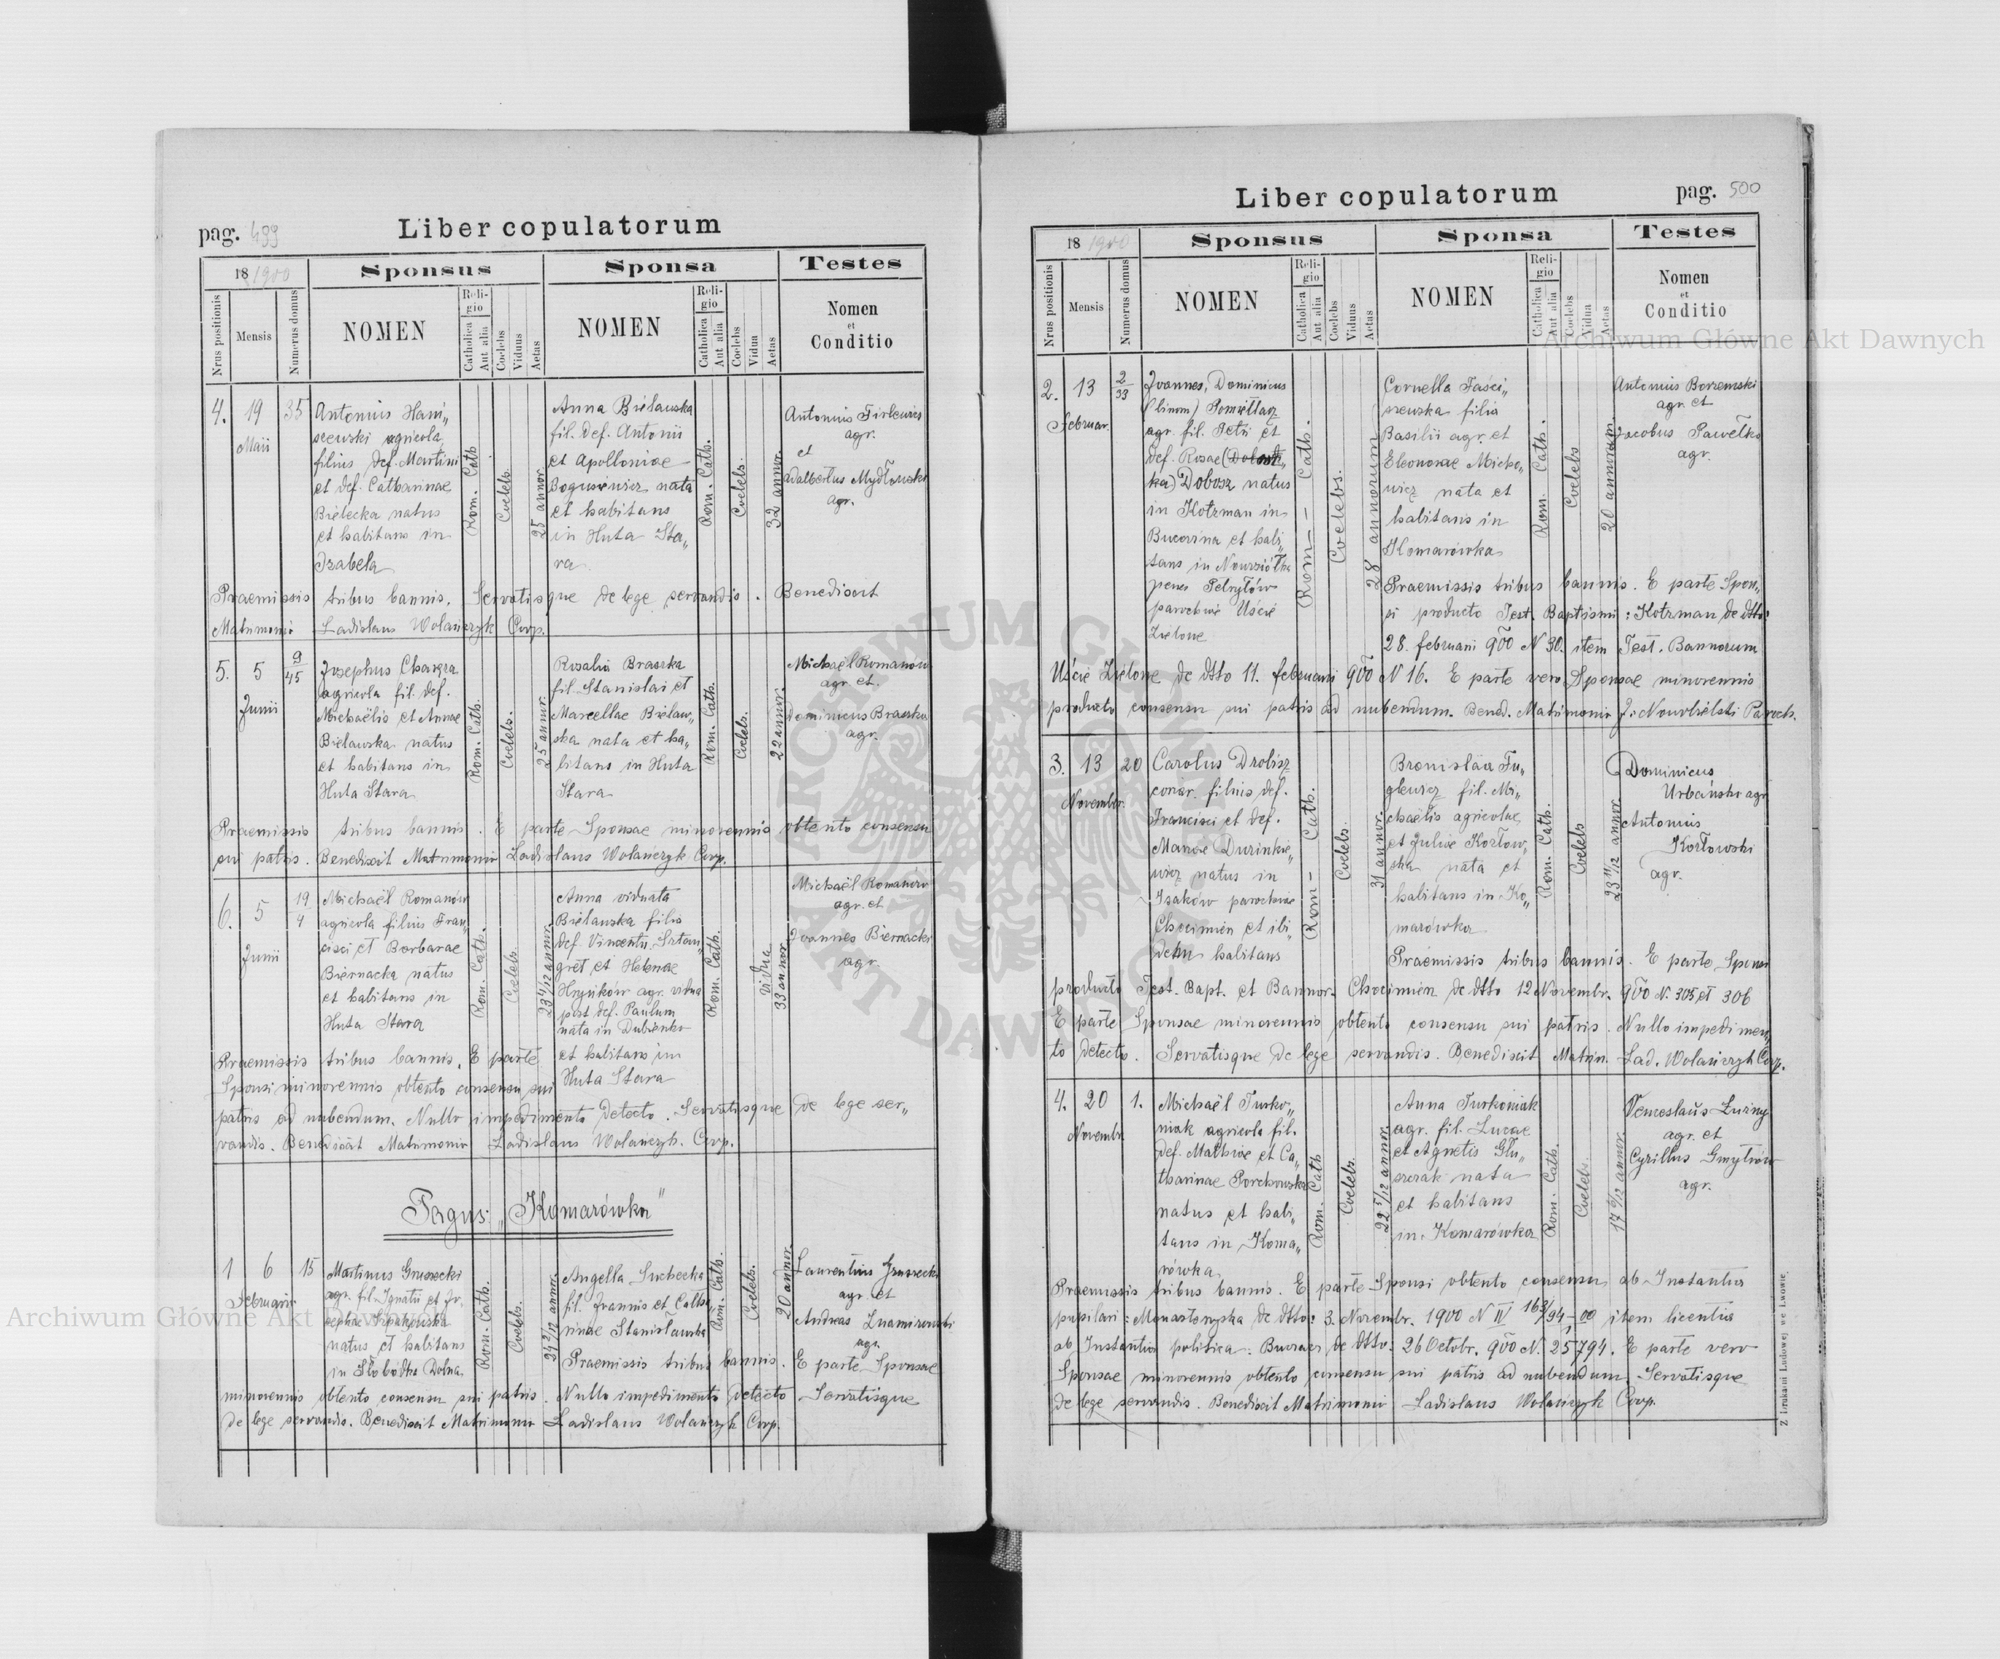 pag. 499
Liber copulatorum
18 1900
Sponsus
Sponsa
Testes
Nrus positionis
Mensis
Numerus domus
NOMEN
Religio
Catholica
Aut alia
Coelebs
Viduus
Aetas
NOMEN
Religio
Catholica
Aut alia
Coelebs
Vidua
Aetas
Nomen
et
Conditio
4. 19 Maii 35
Antonius Hani„
szewski agricola
filius def. Martini
et def. Catharinae
Bielecka natus
et habitans in
Izabela
Rom. Cath.
Coelebs.
25 annor.
Anna Bielawska
fil. def. Antonii
et Apolloniae
Bogusiewicz nata
et habitans
in Huta Sta„
ra
Rom. Cath.
Coelebs.
32 annor.
Antonius Firlewicz
agr.
et
Adalbertus Mydłowski
agr.
Praemissis tribus bannis. Servatisque de lege servandis. Benedixit
Matrimonio Ladislaus Wolańczyk Coop.
5. 5 Junii 9/45
Josephus Charzra
agricola fil. def.
Michaëlis et Annae
Bielawska natus
et habitans in
Huta Stara
Rom. Cath.
Coelebs.
25 annor.
Rosalia Braszka
fil. Stanislai et
Marcellae Bielaw„
ska nata et ha„
bitans in Huta
Stara
Rom. Cath.
Coelebs.
22 annor.
Michaël Romanów
agr. et.
Dominicus Braszka
agr.
Praemissis tribus bannis. E parte Sponsae minorennis obtento consensu
sui patris. Benedixit Matrimonio Ladislaus Wolańczyk Coop.
6. 5 Junii 19/4
Michaël Romanów
agricola filius Fran„
cisci et Barbarae
Biernacka natus
et habitans in
Huta Stara
Rom. Cath.
Coelebs
23 4/12 annor.
Anna viduata
Bielawska filia
def. Vincentii Sztan„
gret et Helenae
Hryńków agr. vidua
post def. Paulum
nata in Dubienko
et habitans in
Huta Stara
Rom. Cath.
Vidua
33 annor.
Michaël Romanów
agr. et
Joannes Biernacki
agr.
Praemissis tribus bannis. E parte
Sponsi minorennis obtento consensu sui
patris ad nubendum. Nullo impedimento detecto. Servatisque de lege ser„
vandis. Benedixit Matrimonio Ladislaus Wolańczyk. Coop.
Pagus: „Komarówka"
1 6 Februarii 15
Martinus Gruszecki
agr. fil. Ignatii et Jo„
sephae
natus et habitans
in Słobodka Dolna
Rom. Cath.
Coelebs.
24 2/12 annor.
Angella Suchecka
fil. Joannis et Catha„
rinae Stanisławska
Rom. Cath.
Coelebs.
20 annor.
Laurentius Gruszecki
agr. et
Andreas Znamirowski
agr.
Praemissis tribus bannis. E parte Sponsae
minorennis obtento consensu sui patris. Nullo impedimento detecto Servatisque
de lege servandis. Benedixit Matrimonio Ladislaus Wolańczyk Coop.
Liber copulatorum
pag. 500
18 1900
Sponsus
Sponsa
Testes
Nrus positionis
Mensis
Numerus domus
NOMEN
Religio
Catholica
Aut alia
Coelebs
Viduus
Aetas
NOMEN
Religio
Catholica
Aut alia
Coelebs
Vidua
Aetas
Nomen
et
Conditio
2. 13 Februar. 2/33
Joannes, Dominicus
(binom)
agr. fil. Petri et
def. Rosae
Dobosz natus
in Kotzman in
Bucovina et habi„
tans in Nowosiółka
penes Petryłów
parochiae Uście
Zielone
Rom – Cath.
Coelebs.
28 annorum
Cornella Jaści„
szewska filia
Basilii agr. et
Eleonorae Micke„
wicz nata et
habitans in
Komarówka
Rom. Cath.
Coelebs
20 annorum.
Antonius Borzemski
agr. et
Jacobus Pawełko
agr.
Praemissis tribus bannis. E parte Spon„
si producto Test. Baptismi: Kotzman de dtto:
28. februarii 900 N 30. item Test. Bannorum
Uście Zielone de dtto 11. februarii 900 N 16. E parte vero Sponsae minorennis
producto consensu sui patris ad nubendum. Bened. Matrimonio J. Nowosielski Paroch.
3. 13 Novembr. 20
Carolus Drobisz
filius def.
Francisci et def.
Mariae Durinkie„
wicz natus in
Isaków parochiae
Chocimierz et ibi„
dem habitans
Rom – Cath.
Coelebs.
31 annor.
Bronislaa Fu„
glewicz fil. Mi„
chaëlis agricolae
et Juliae Kozłow„
ska nata et
habitans in Ko„
marówka
Rom. Cath.
Coelebs
23 11/12 annor.
Dominicus
Urbański agr.
Antonius
Kozłowski
agr.
Praemissis tribus bannis. E parte Sponsi
producto Test. Bapt. et Bannor. Chocimierz de dtto 12 Novembr. 900 N. 305 et 306
E parte Sponsae minorennis obtento consensu sui patris. Nullo impedimen„
to detecto. Servatisque de lege servandis. Benedixit Matrim. Lad. Wolańczyk Coop.
4. 20 Novembr. 1.
Michaël Turko„
niak agricola fil.
def. Mathiae et Ca„
tharinae Porchowska
natus et habi„
tans in Koma„
rówka
Rom. Cath
Coelebs.
22 5/12 annor.
Anna Turkoniak
agr. fil. Lucae
et Agnetis Głu„
szczak nata
et habitans
in Komarówka
Rom. Cath.
Coelebs.
17 6/12 annor.
Venceslaŭs Luzny
agr. et
Cyrillus Gmytrów
agr.
Praemissis tribus bannis. E parte Sponsi obtento consensu ab Instantia
pupilari: Monasterzyska de dtto: 3. Novembr. 1900 N IV 163/94-00 item licentia
ab Instantia politica: Buczacz de dtto: 26 Octobr. 900 N. 25794. E parte vero
Sponsae minorennis obtento consensu sui patris ad nubendum. Servatisque
de lege servandis. Benedixit Matrimonio Ladislaus Wolańczyk Coop.
Z Drukarni Ludowej we Lwowie.
Archiwum Główne Akt Dawnych
Archiwum Główne Akt Dawnych
ARCHIWUM GŁÓWNE AKT DAWNYCH